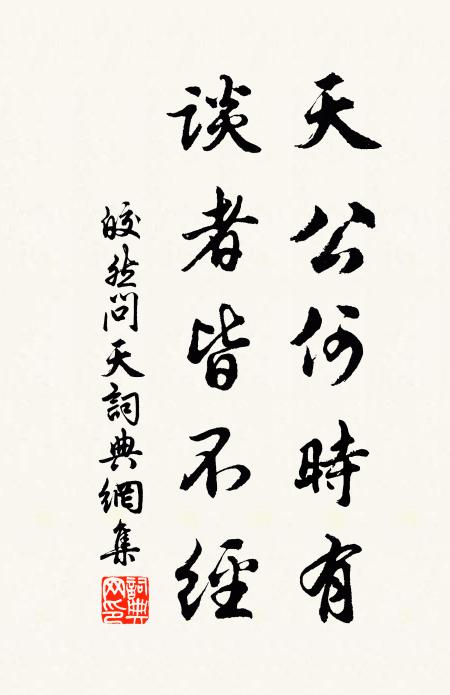 天公何時有
談者皆不經
皎然問天詞典網集
詞典网印